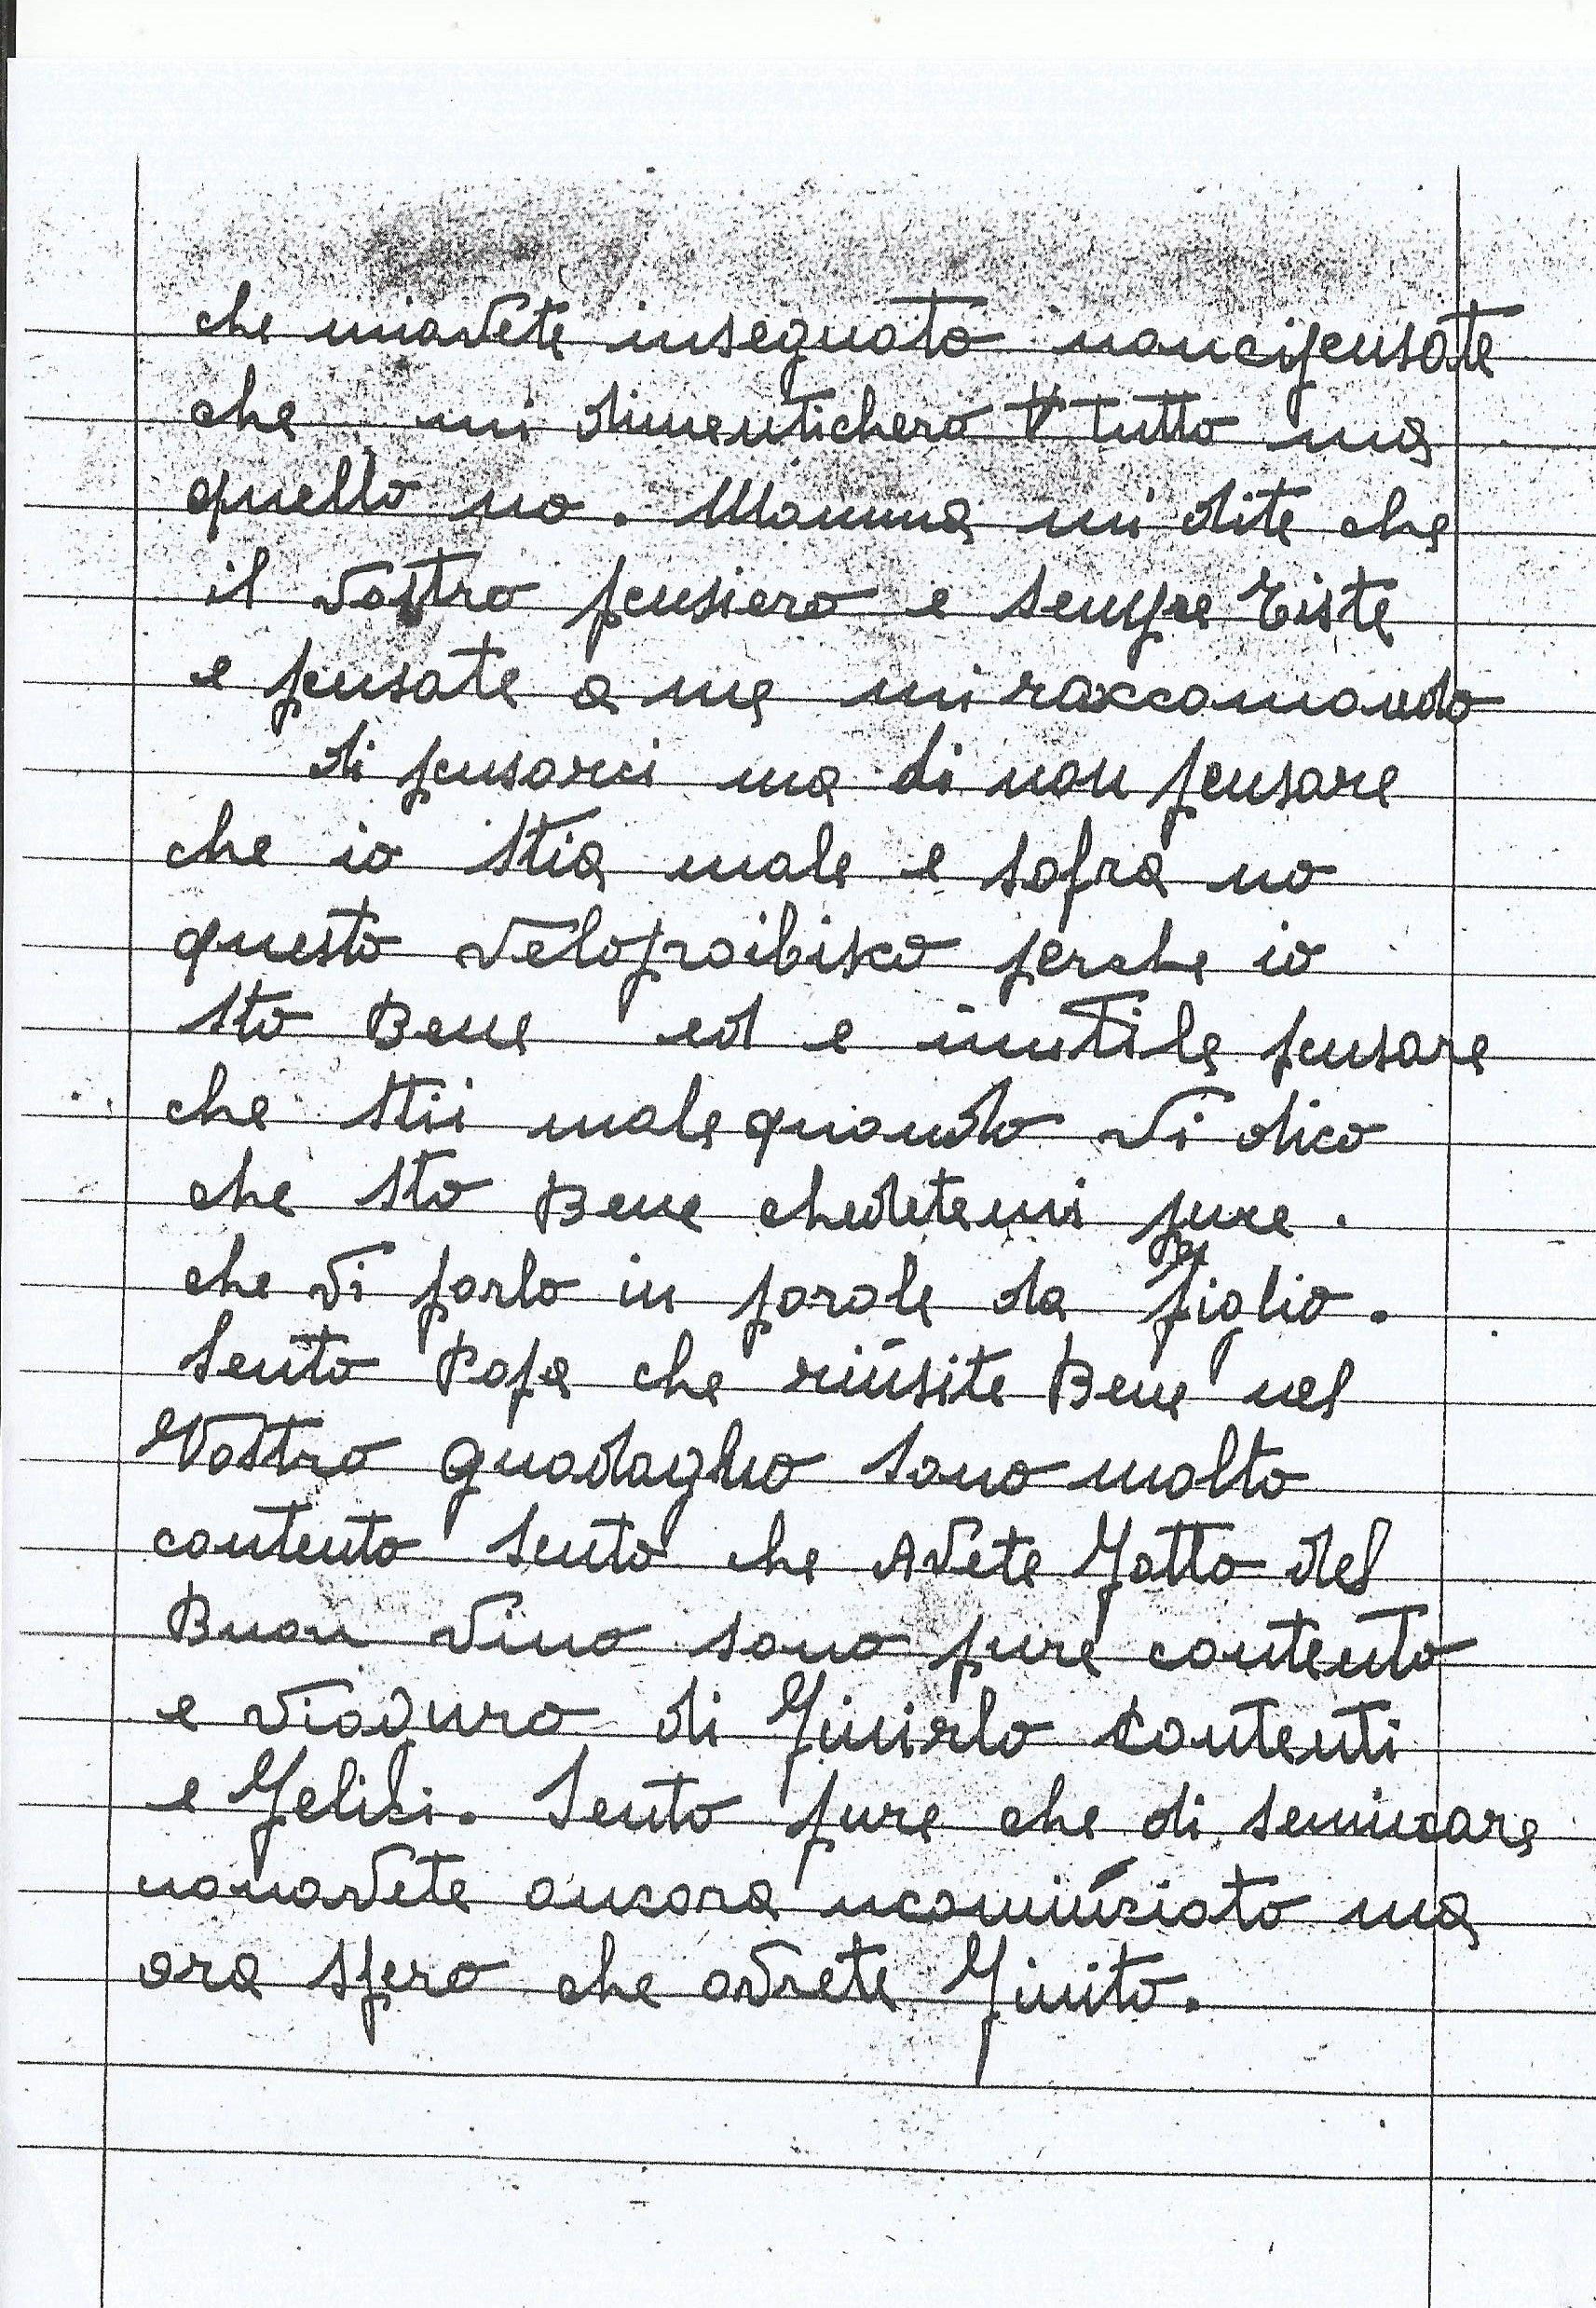 che miavete insegnato noncipensate
che mi dimentichero tutto ma
quello no. Mamma mi dite che
il vostro pensiero e sempre triste
e pensate a me mi raccomando
di pensarci ma di non pensare
che io stia male e sofra no
questo veloproibisco perche io
sto Bene ed e inutile pensare
che stii male quando vi dico
che sto Bene chedetemi pure.
che vi parlo in parole da figlio.
Sento Papa che riusite Bene nel
Vostro guadaghio sono molto
contento sento che Avete Fatto del
Buon vino sono pure contento
e viaguro di Finirlo Contenti
e Felici. Sento pure che di semicare
nonavete ancora ncominciato ma
ora spero che avrete Finito.